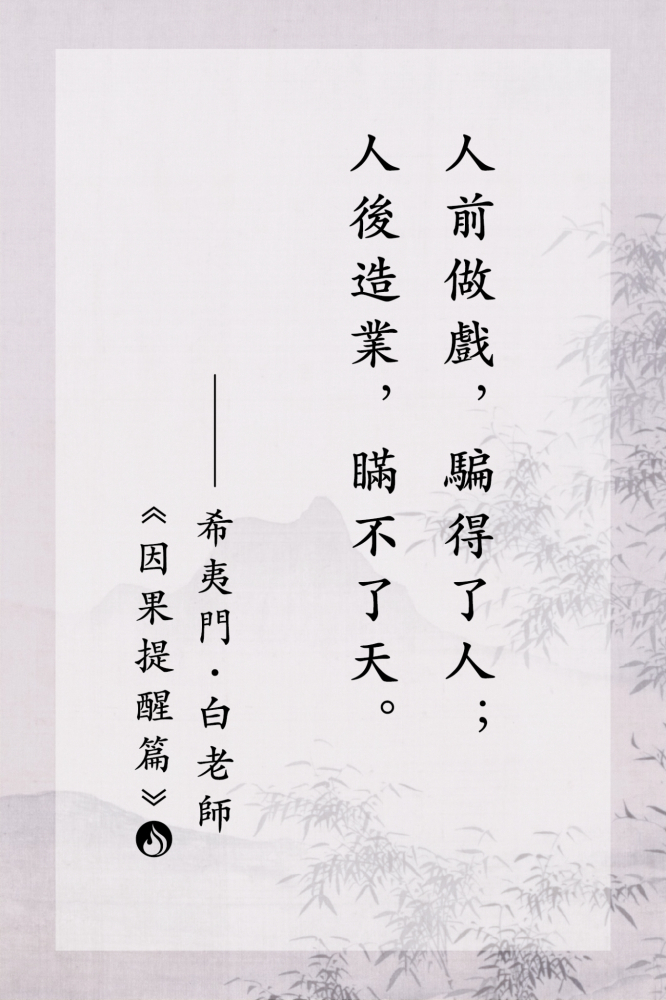 人前做戲，騙得了人；
人後造業，瞞不了天。
——希夷門·白老師
《因果提醒篇》